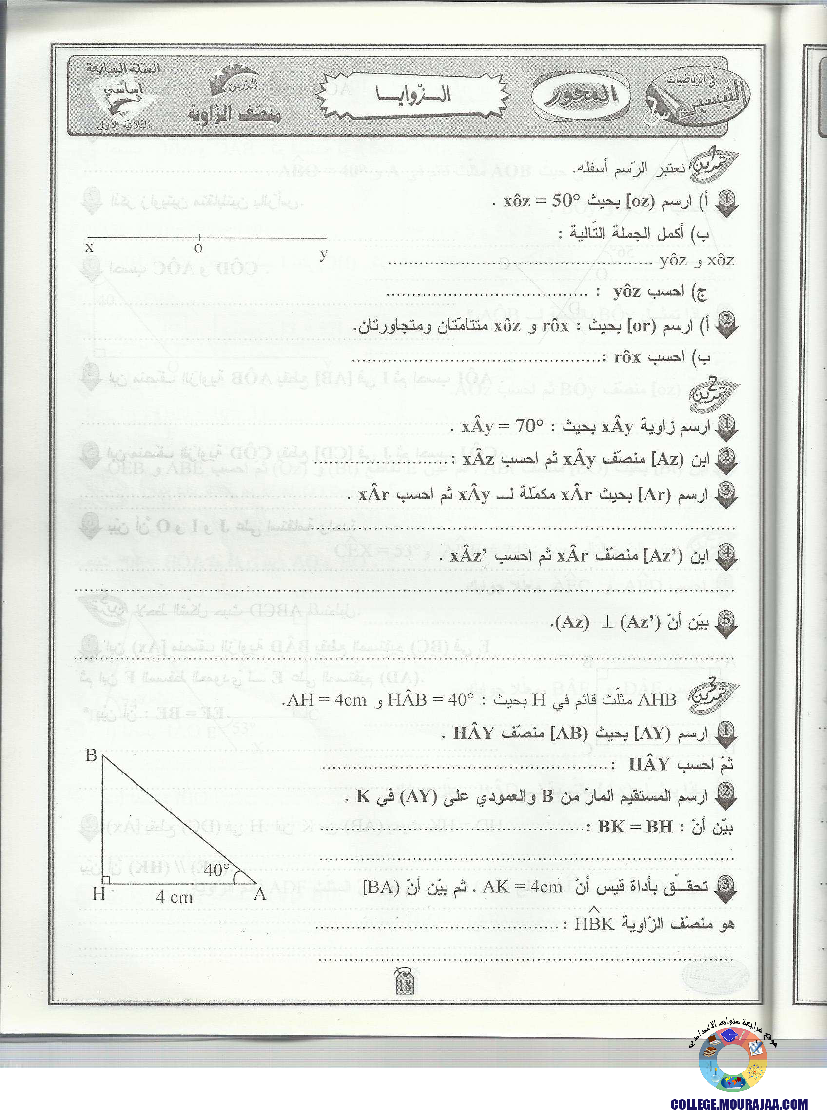 السنة السابعة
أساسي
التيسير
في الرياضيات
المحور
الـزّوايـا
منصّف الزاوية
تمرين 1 نعتبر الرّسم أسفله.
1 أ) ارسم [oz) بحيث xôz = 50° .
ب) أكمل الجملة التّالية :
xôz و yôz ................................................
x o y
ج) احسب yôz : ....................................
2 أ) ارسم [or) بحيث : rôx و xôz متتامّتان ومتجاورتان.
ب) احسب rôx :................................................
تمرين 2
1 ارسم زاوية xÂy بحيث : xÂy = 70° .
2 ابن [Az) منصّف xÂy ثم احسب xÂz : ..........................
3 ارسم [Ar) بحيث xÂr مكمّلة لـ xÂy ثم احسب xÂr .
4 ابن [Az’) منصّف xÂr ثم احسب xÂz’ .
5 بيّن أنّ (Az) ⊥ (Az’).
تمرين 3 AHB مثلّث قائم في H بحيث : HÂB = 40° و AH = 4cm.
1 ارسم [AY) بحيث [AB) منصّف HÂY .
ثمّ احسب HÂY : ................................................
2 ارسم المستقيم المارّ من B والعمودي على (AY) في K .
بيّن أنّ : BK = BH : ................................
3 تحقـّـق بأداة قيس أنّ AK = 4cm . ثم بيّن أنّ [BA)
هو منصّف الزّاوية HB̂K : ..........................................
B
40°
H 4 cm A
18
موقع مراجعة
COLLEGE.MOURAJAA.COM